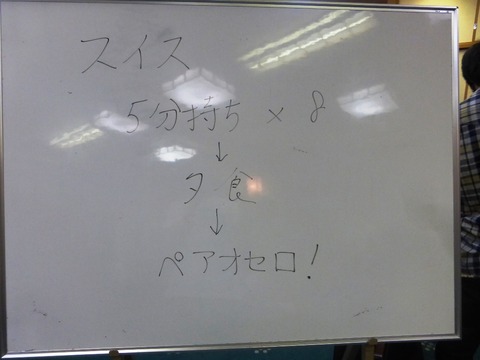 スイス
5分持ち × 8
↓
夕食
↓
ペアオセロ!